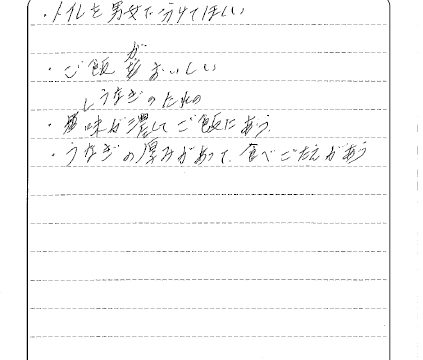 ・トイレを男女で分けてほしい
・ご飯がおいしい
└うなぎのたれの
・味が濃してご飯にあう
・うなぎの厚みがあって、食べごたえがあう